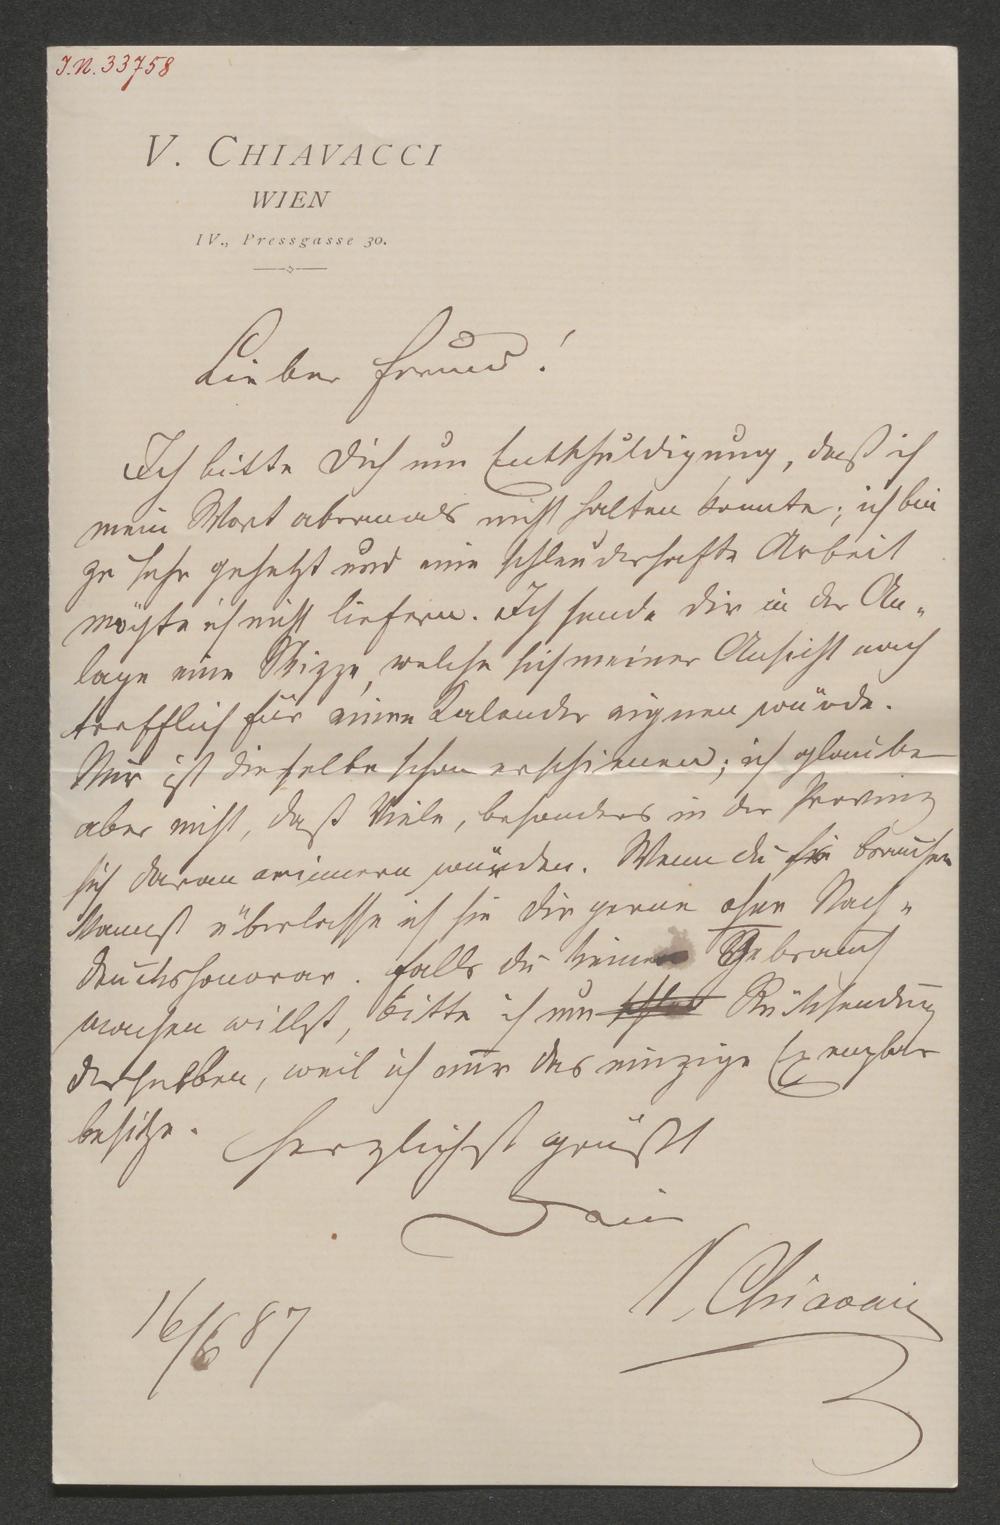 J.N. 33758
V. CHIAVACCI
WIEN
IV., Pressgasse 30.
Lieber Freund!
Ich bitte Dich um Entschuldigung, daß ich
mein Wort abermals nicht halten konnte; ich bin
zu sehr gehetzt und eine schleuderhafte Arbeit
möchte ich nicht liefern. Ich sende dir in der An-
lage eine Skizze, welche sich meiner Ansicht nach
trefflich für einen Kalender eignen würde.
Mir ist dieselbe schon erschienen; ich glaube
aber nicht, daß Viele, besonders in der Provinz
sich daran erinnern würden. Wenn du sie brauchen
kannst überlasse ich sie dir gerne ohne Nach-
druckshonorar. Falls du keinen Gebrauch
machen willst, bitte ich um Rücksendung
derselben, weil ich nur das einzige Exemplar
besitze.
Herzlichst grüßt
Dein
V. Chiavacci
16/6 87